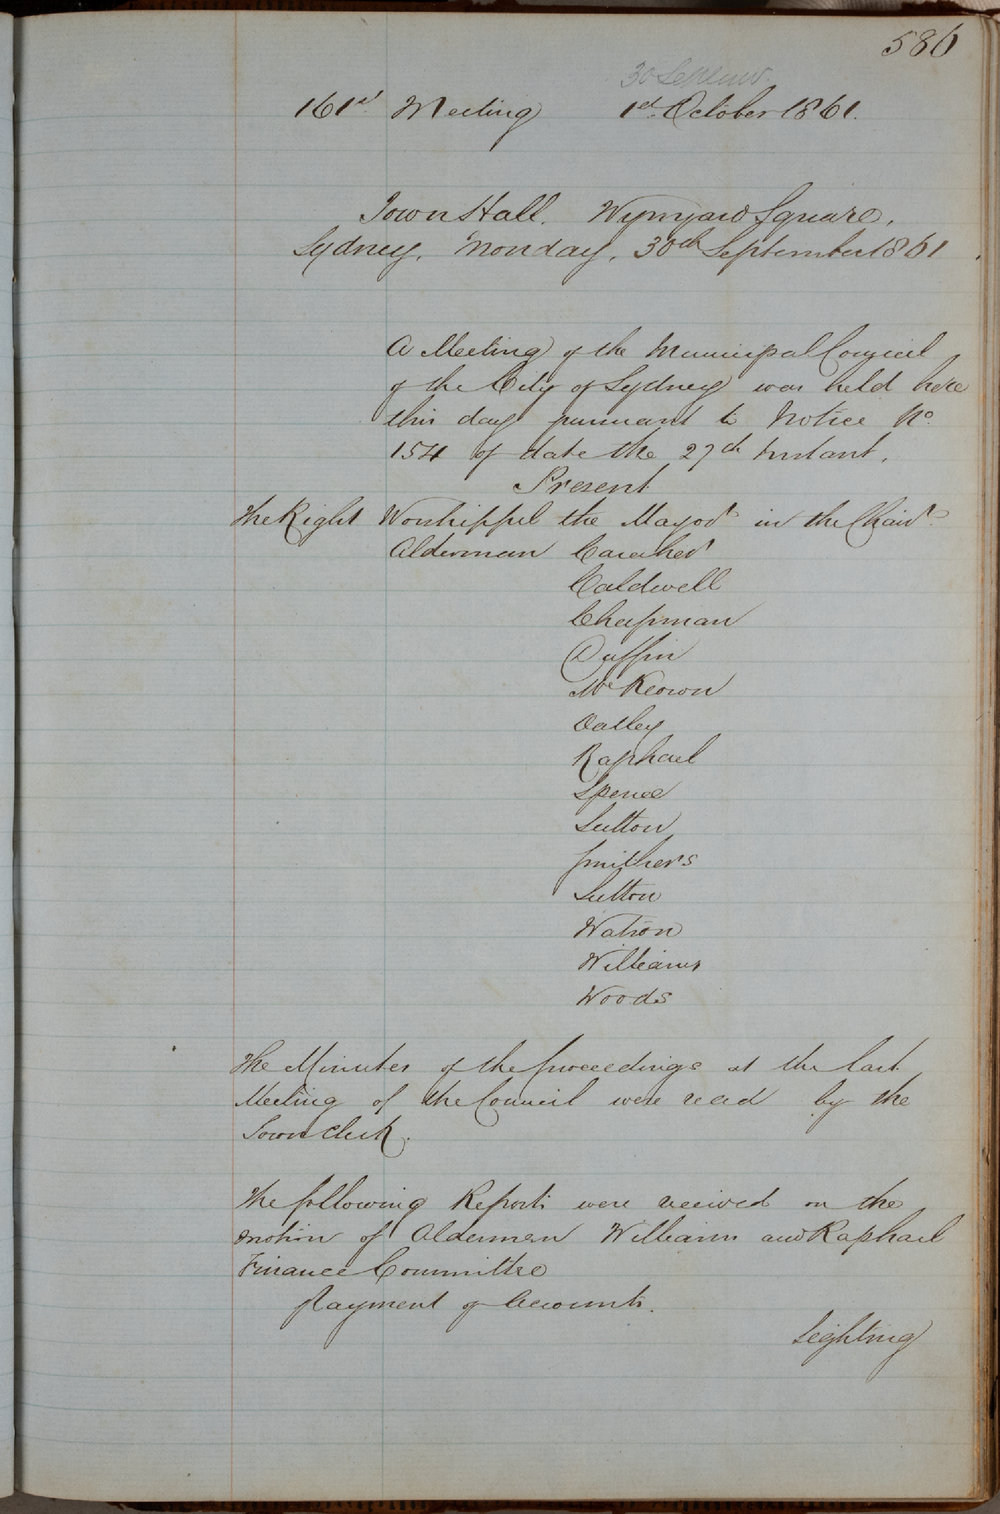 586
30 Septemr.
161st Meeting 1st October 1861.
Town Hall, Wynyard Square,
Sydney, Monday, 30th September 1861.
A Meeting of the Municipal Council
of the City of Sydney was held here
this day pursuant to Notice No.
154 of date the 27th Instant.
Present
The Right Worshipful the Mayor in the Chair.
Alderman Caraher
Caldwell
Chapman
Duffin
McKeown
Oatley
Raphael
Spence
Sutton
Smithers
Sutton
Watson
Williams
Woods
The Minutes of the proceedings at the last
Meeting of the Council were read by the
Town Clerk.
The following Reports were received on the
motion of Aldermen Williams and Raphael
Finance Committee
Payment of Accounts.
Lighting